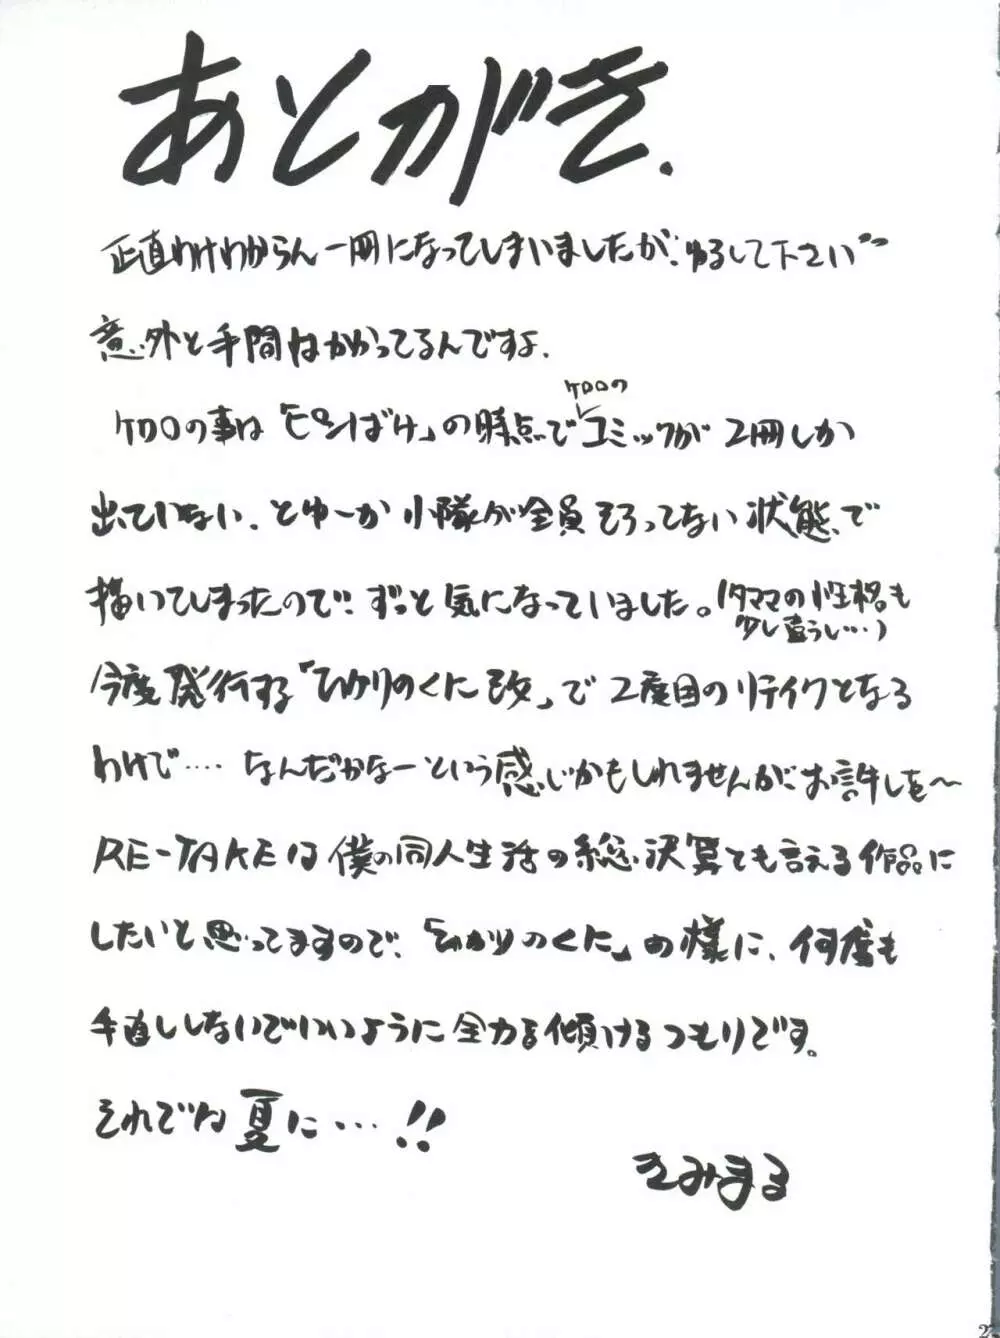 あとがき.
正直わけわからん一冊になってしまいましたが、ゆるして下さい〃
意外と手間はかかってるんですよ.
ケロロの
ケロロの事は「ピンばけ」の時点でコミックが2冊しか
出ていない. とゆーか小隊が全員そろってない状態で
描いてしまったので、ずっと気になっていました。(タママの性格も
少し違うし…)
今度発行する「ひかりのくに改」で2度目のリテイクとなる
わけで…. なんだかなーという感じかもしれませんが、お許しを〜
RE-TAKEは僕の同人生活の総決算とも言える作品に
したいと思ってますので、「ひかりのくに」の様に、何度も
手直ししないでいいように全力を傾けるつもりです。
それでは夏に…!!
きみまる